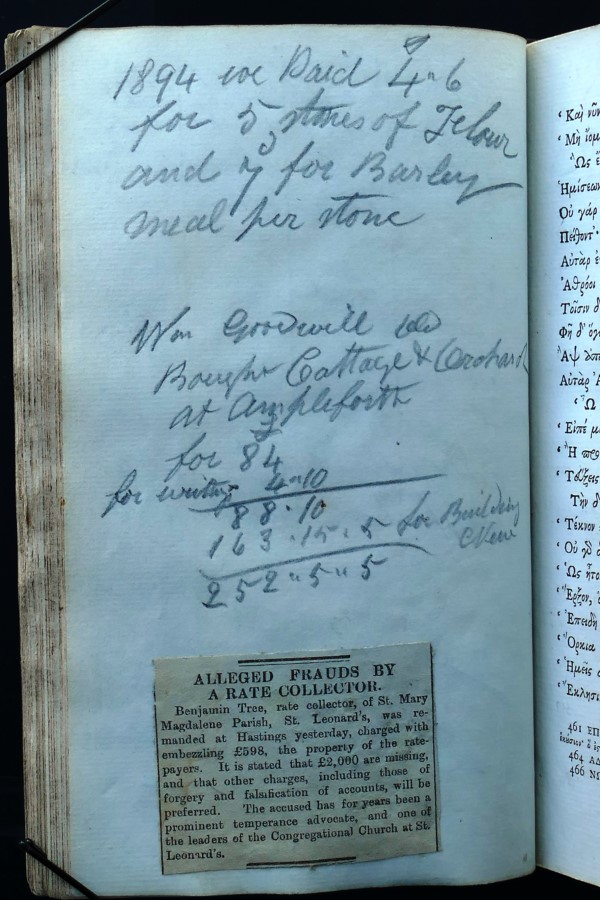 1894 we Paid 4"6
for 5 stones of Flour
and 7 for Barley
meal per stone
Wm Goodwill
Bought Cottage & Orchard
at Ampleforth
for 84
for writing 4"10
88·10
163·15·5 for Building
New
252"5"5
ALLEGED FRAUDS BY
A RATE COLLECTOR.
Benjamin Tree, rate collector, of St. Mary
Magdalene Parish, St. Leonard's, was re-
manded at Hastings yesterday, charged with
embezzling £598, the property of the rate-
payers. It is stated that £2,000 are missing,
and that other charges, including those of
forgery and falsification of accounts, will be
preferred. The accused has for years been a
prominent temperance advocate, and one of
the leaders of the Congregational Church at St.
Leonard's.
‘Καὶ νῦν
‘Μὴ
Ἡμίσεων
Οὐ γάρ
Αὐτὰρ
Τοῖσιν
Αὐτὰρ
‘Ω
‘Εἰπέ
Τέκνον
‘Ἐπειδὴ
‘Ὅρκια
‘Ἡμεῖς
461
464
466